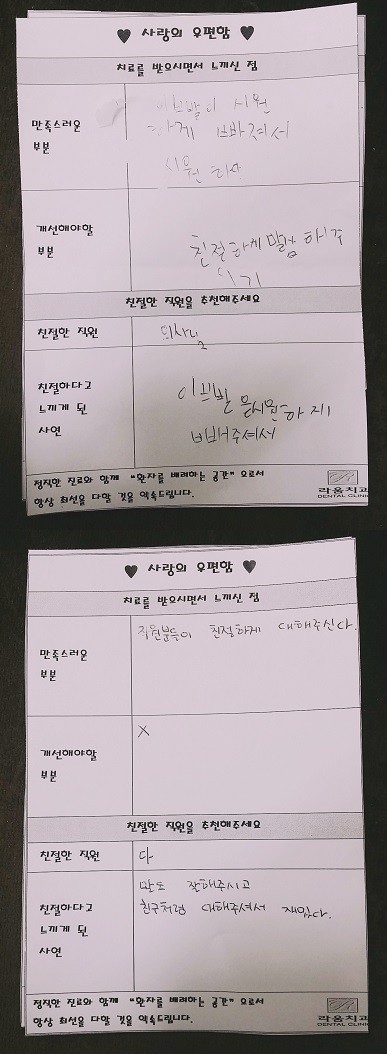 ♥ 사랑의 우편함 ♥
치료를 받으시면서 느끼신 점
만족스러운
부분
이쁘발이 시원
하게 빠져서
시원하다
개선해야할
부분
친절하게 말씀 해주
시기
친절한 직원을 추천해주세요
친절한 직원
의사님
친절하다고
느끼게 된
사연
이쁘발 을시원하게
빠배주셔서
정직한 진료와 함께 "환자를 배려하는 공간" 으로서
항상 최선을 다할 것을 약속드립니다.
라움치과
DENTAL CLINIC
♥ 사랑의 우편함 ♥
치료를 받으시면서 느끼신 점
만족스러운
부분
직원분들이 친절하게 대해주신다.
개선해야할
부분
X
친절한 직원을 추천해주세요
친절한 직원
다
친절하다고
느끼게 된
사연
말도 잘해주시고
친구처럼 대해주셔서 재밌다.
정직한 진료와 함께 "환자를 배려하는 공간" 으로서
항상 최선을 다할 것을 약속드립니다.
라움치과
DENTAL CLINIC